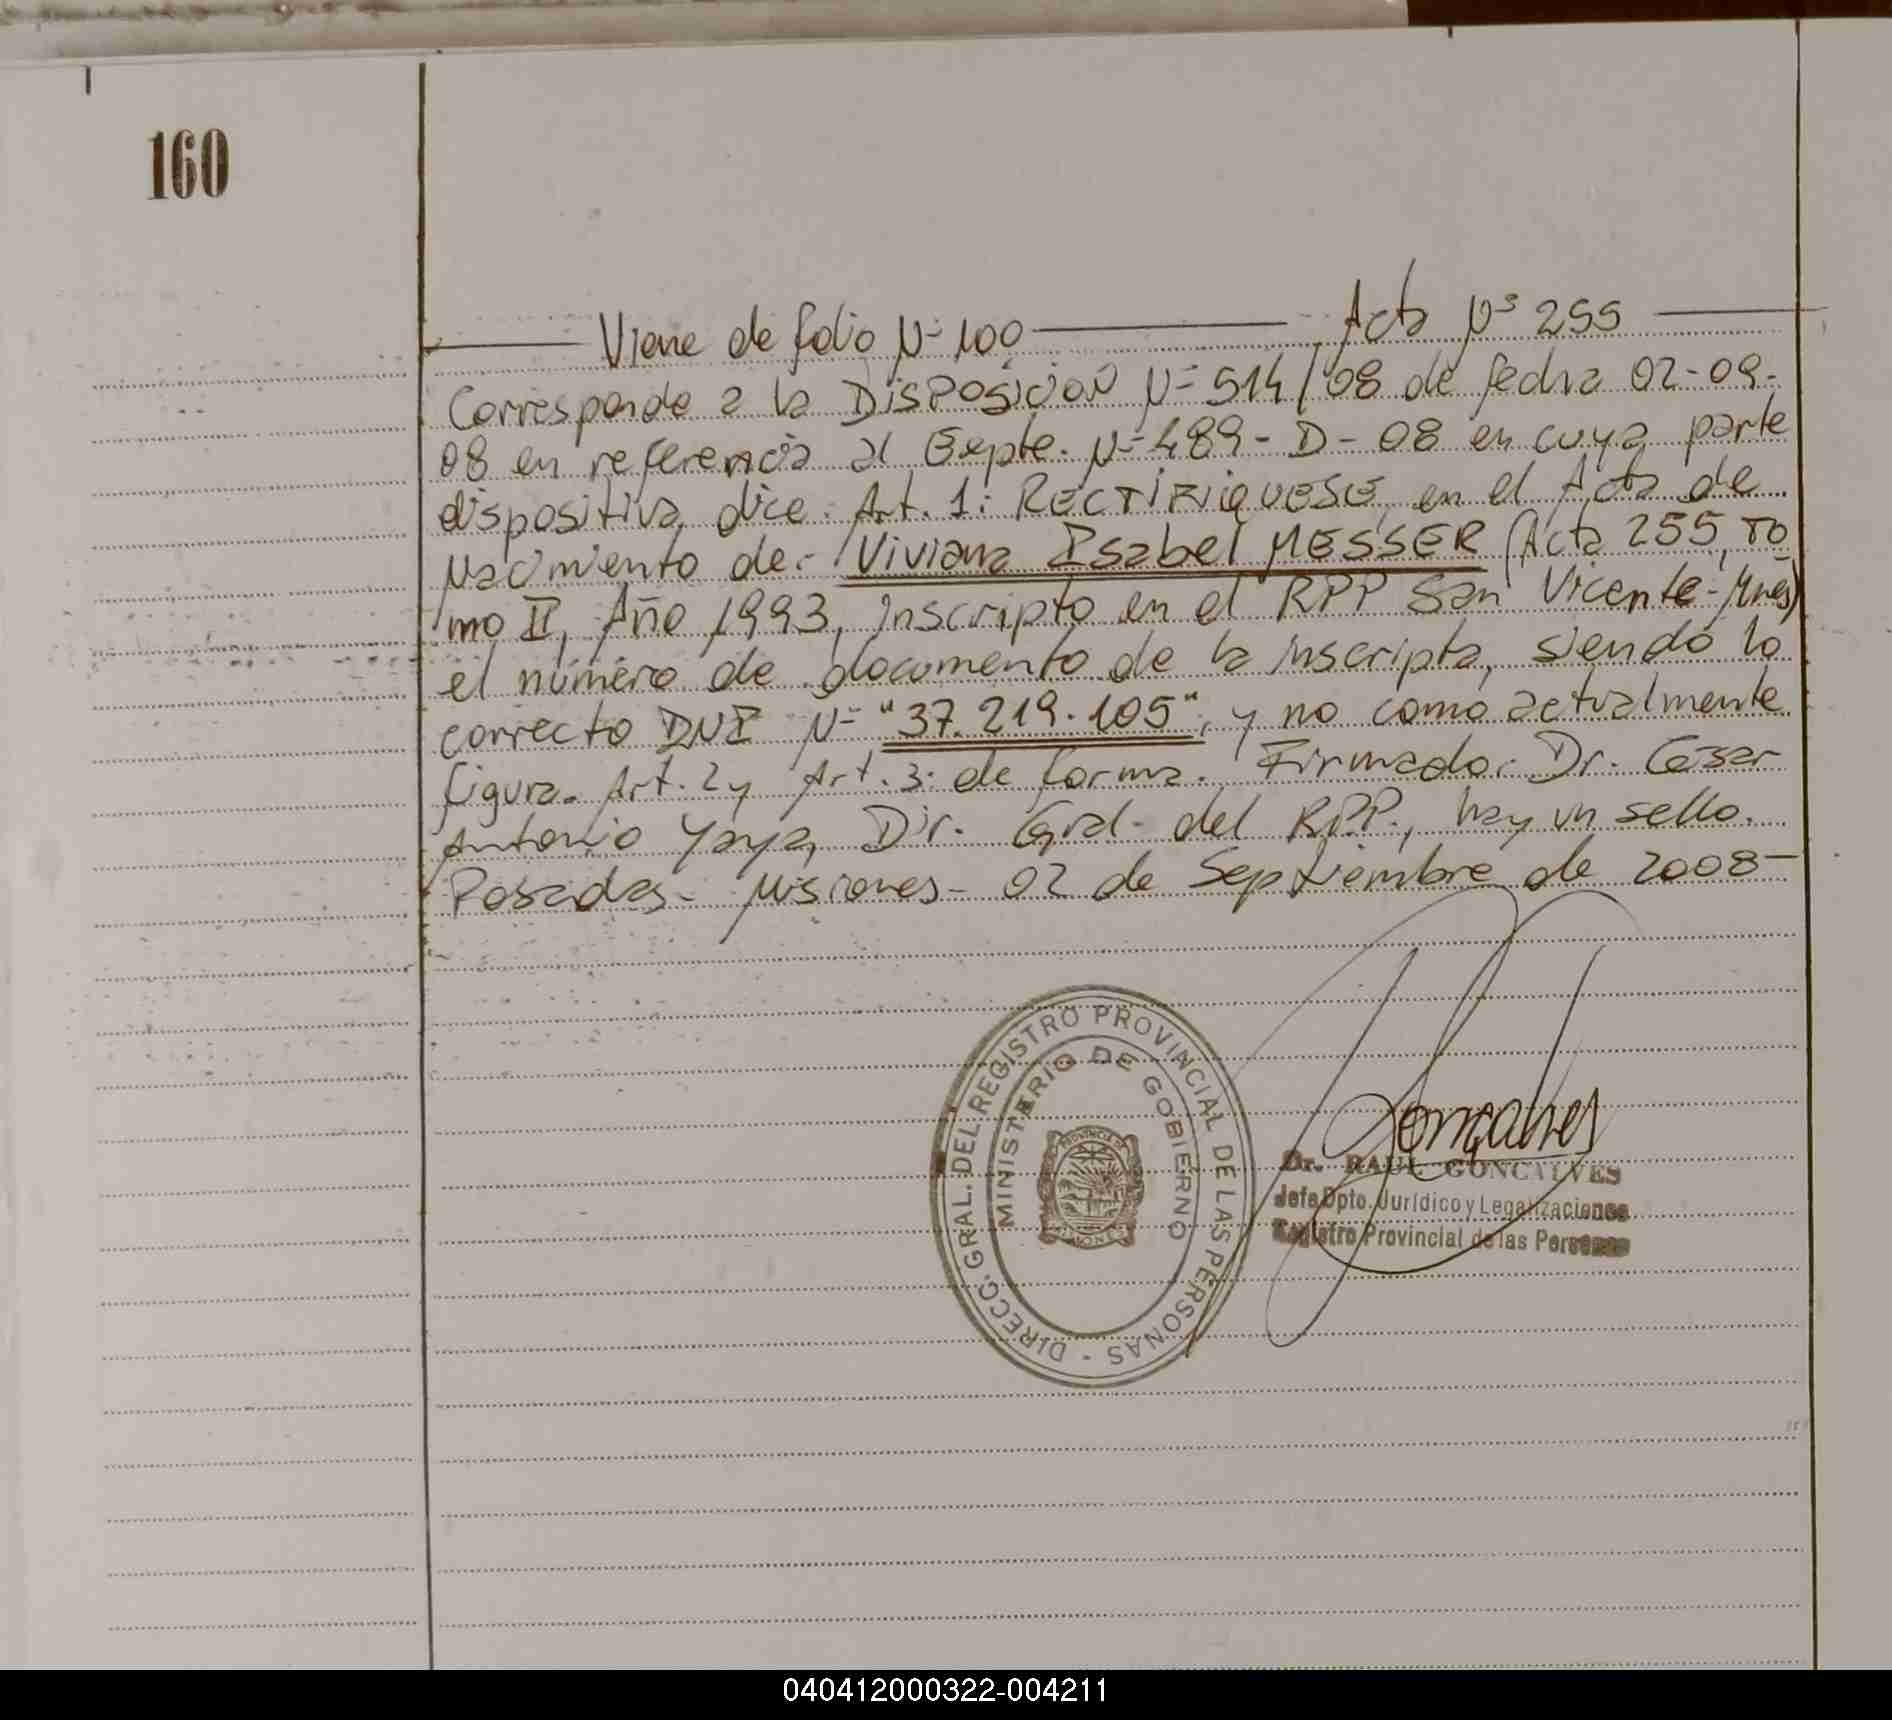 160
Viene de folio Nº 100 Acta Nº 255
Corresponde a la DISPOSICION Nº 514/08 de fecha 02-09-
08 en referencia al Expte. Nº 489-D-08 en cuya parte
dispositiva dice: Art. 1: RECTIFIQUESE, en el Acta de
Nacimiento de: Viviana Isabel MESSER (Acta 255, To
mo II, Año 1993, inscripto en el RPP San Vicente-Mnes)
el número de documento de la inscripta, siendo lo
correcto DNI Nº "37.219.105", y no como actualmente
figura. Art. 2 y Art. 3: de forma. Firmado: Dr. Cesar
Antonio Yaya, Dir. Gral. del RPP., hay un sello.
Posadas - Misiones - 02 de Septiembre de 2008
DIRECC. GRAL. DEL REGISTRO PROVINCIAL DE LAS PERSONAS -
MINISTERIO DE GOBIERNO
PROVINCIA DE
MISIONES
Goncalves
Dr. RAUL GONCALVES
Jefe Dpto. Jurídico y Legalizaciones
Registro Provincial de las Personas
040412000322-004211